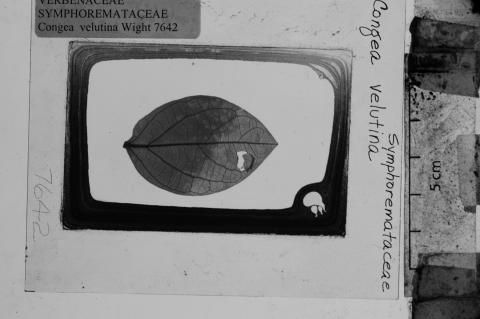 VERBENACEAE
SYMPHOREMATACEAE
Congea velutina Wight 7642
Congea velutina
Symphoremataceae
5cm
7642